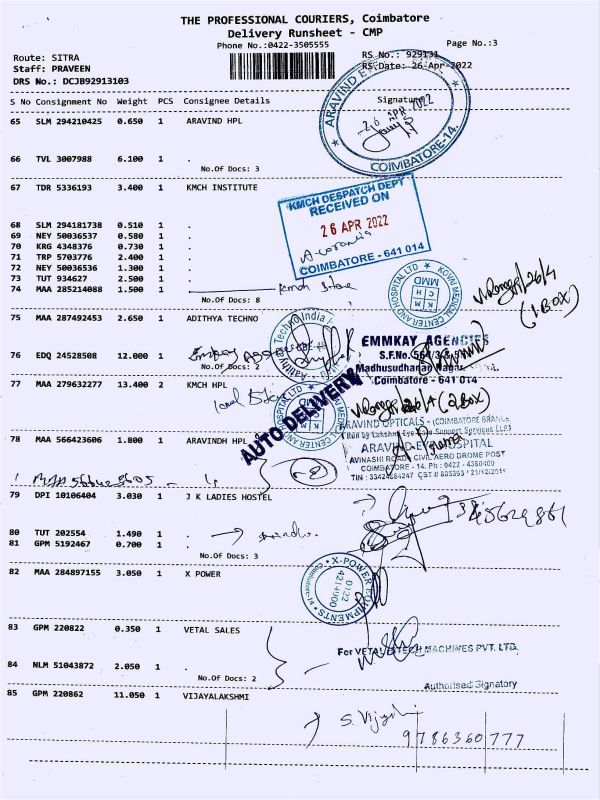 THE PROFESSIONAL COURIERS, Coimbatore
Delivery Runsheet - CMP
Phone No.:0422-3505555
Page No.:3
Route: SITRA
RS No.: 929131
Staff: PRAVEEN
RS Date: 26-Apr-2022
DRS No.: DCJB92913103
S No Consignment No Weight PCS Consignee Details Signature
65 SLM 294210425 0.650 1 ARAVIND HPL
ARAVIND
26 APR 2022
COIMBATORE-14.
66 TVL 3007988 6.100 1 .
No.Of Docs: 3
67 TDR 5336193 3.400 1 KMCH INSTITUTE
KMCH DESPATCH DEPT
RECEIVED ON
26 APR 2022
COIMBATORE - 641 014
68 SLM 294181738 0.510 1 .
69 NEY 50036537 0.580 1 .
70 KRG 4348376 0.730 1 .
71 TRP 5703776 2.400 1 .
72 NEY 50036536 1.300 1 .
73 TUT 934627 2.500 1 .
74 MAA 285214088 1.500 1 .
Kmch Store
No.Of Docs: 8
KOVAI MEDICAL CENTER AND HOSPITAL LTD
KMCH
MMD
26/4
(1 BOX)
75 MAA 287492453 2.650 1 ADITHYA TECHNO
EMMKAY AGENCIES
S.F.No. 564/3
Madhusudhanan Nagar
Coimbatore - 641 014
76 EDQ 24528508 12.000 1 .
No.Of Docs: 2
77 MAA 279632277 13.400 2 KMCH HPL
AUTO DELIVERY
26/4 (2 BOX)
78 MAA 566423606 1.800 1 ARAVINDH HPL
ARAVIND OPTICALS - (COIMBATORE BRANCH)
(Run by Lakshmi Eye Care Support Services LLP)
ARAVIND EYE HOSPITAL
AVINASHI ROAD, CIVIL AERO DROME POST
COIMBATORE - 14. Ph : 0422 - 4360400
79 DPI 10106404 3.030 1 J K LADIES HOSTEL
80 TUT 202554 1.490 1 .
81 GPM 5192467 0.700 1 .
No.Of Docs: 3
82 MAA 284897155 3.050 1 X POWER
X-POWER EQUIPMENTS
0422
4214900
83 GPM 220822 0.350 1 VETAL SALES
For VETAL HITECH MACHINES PVT. LTD.
84 NLM 51043872 2.050 1 .
No.Of Docs: 2
Authorised Signatory
85 GPM 220862 11.050 1 VIJAYALAKSHMI
S. Vijaya
9786360777